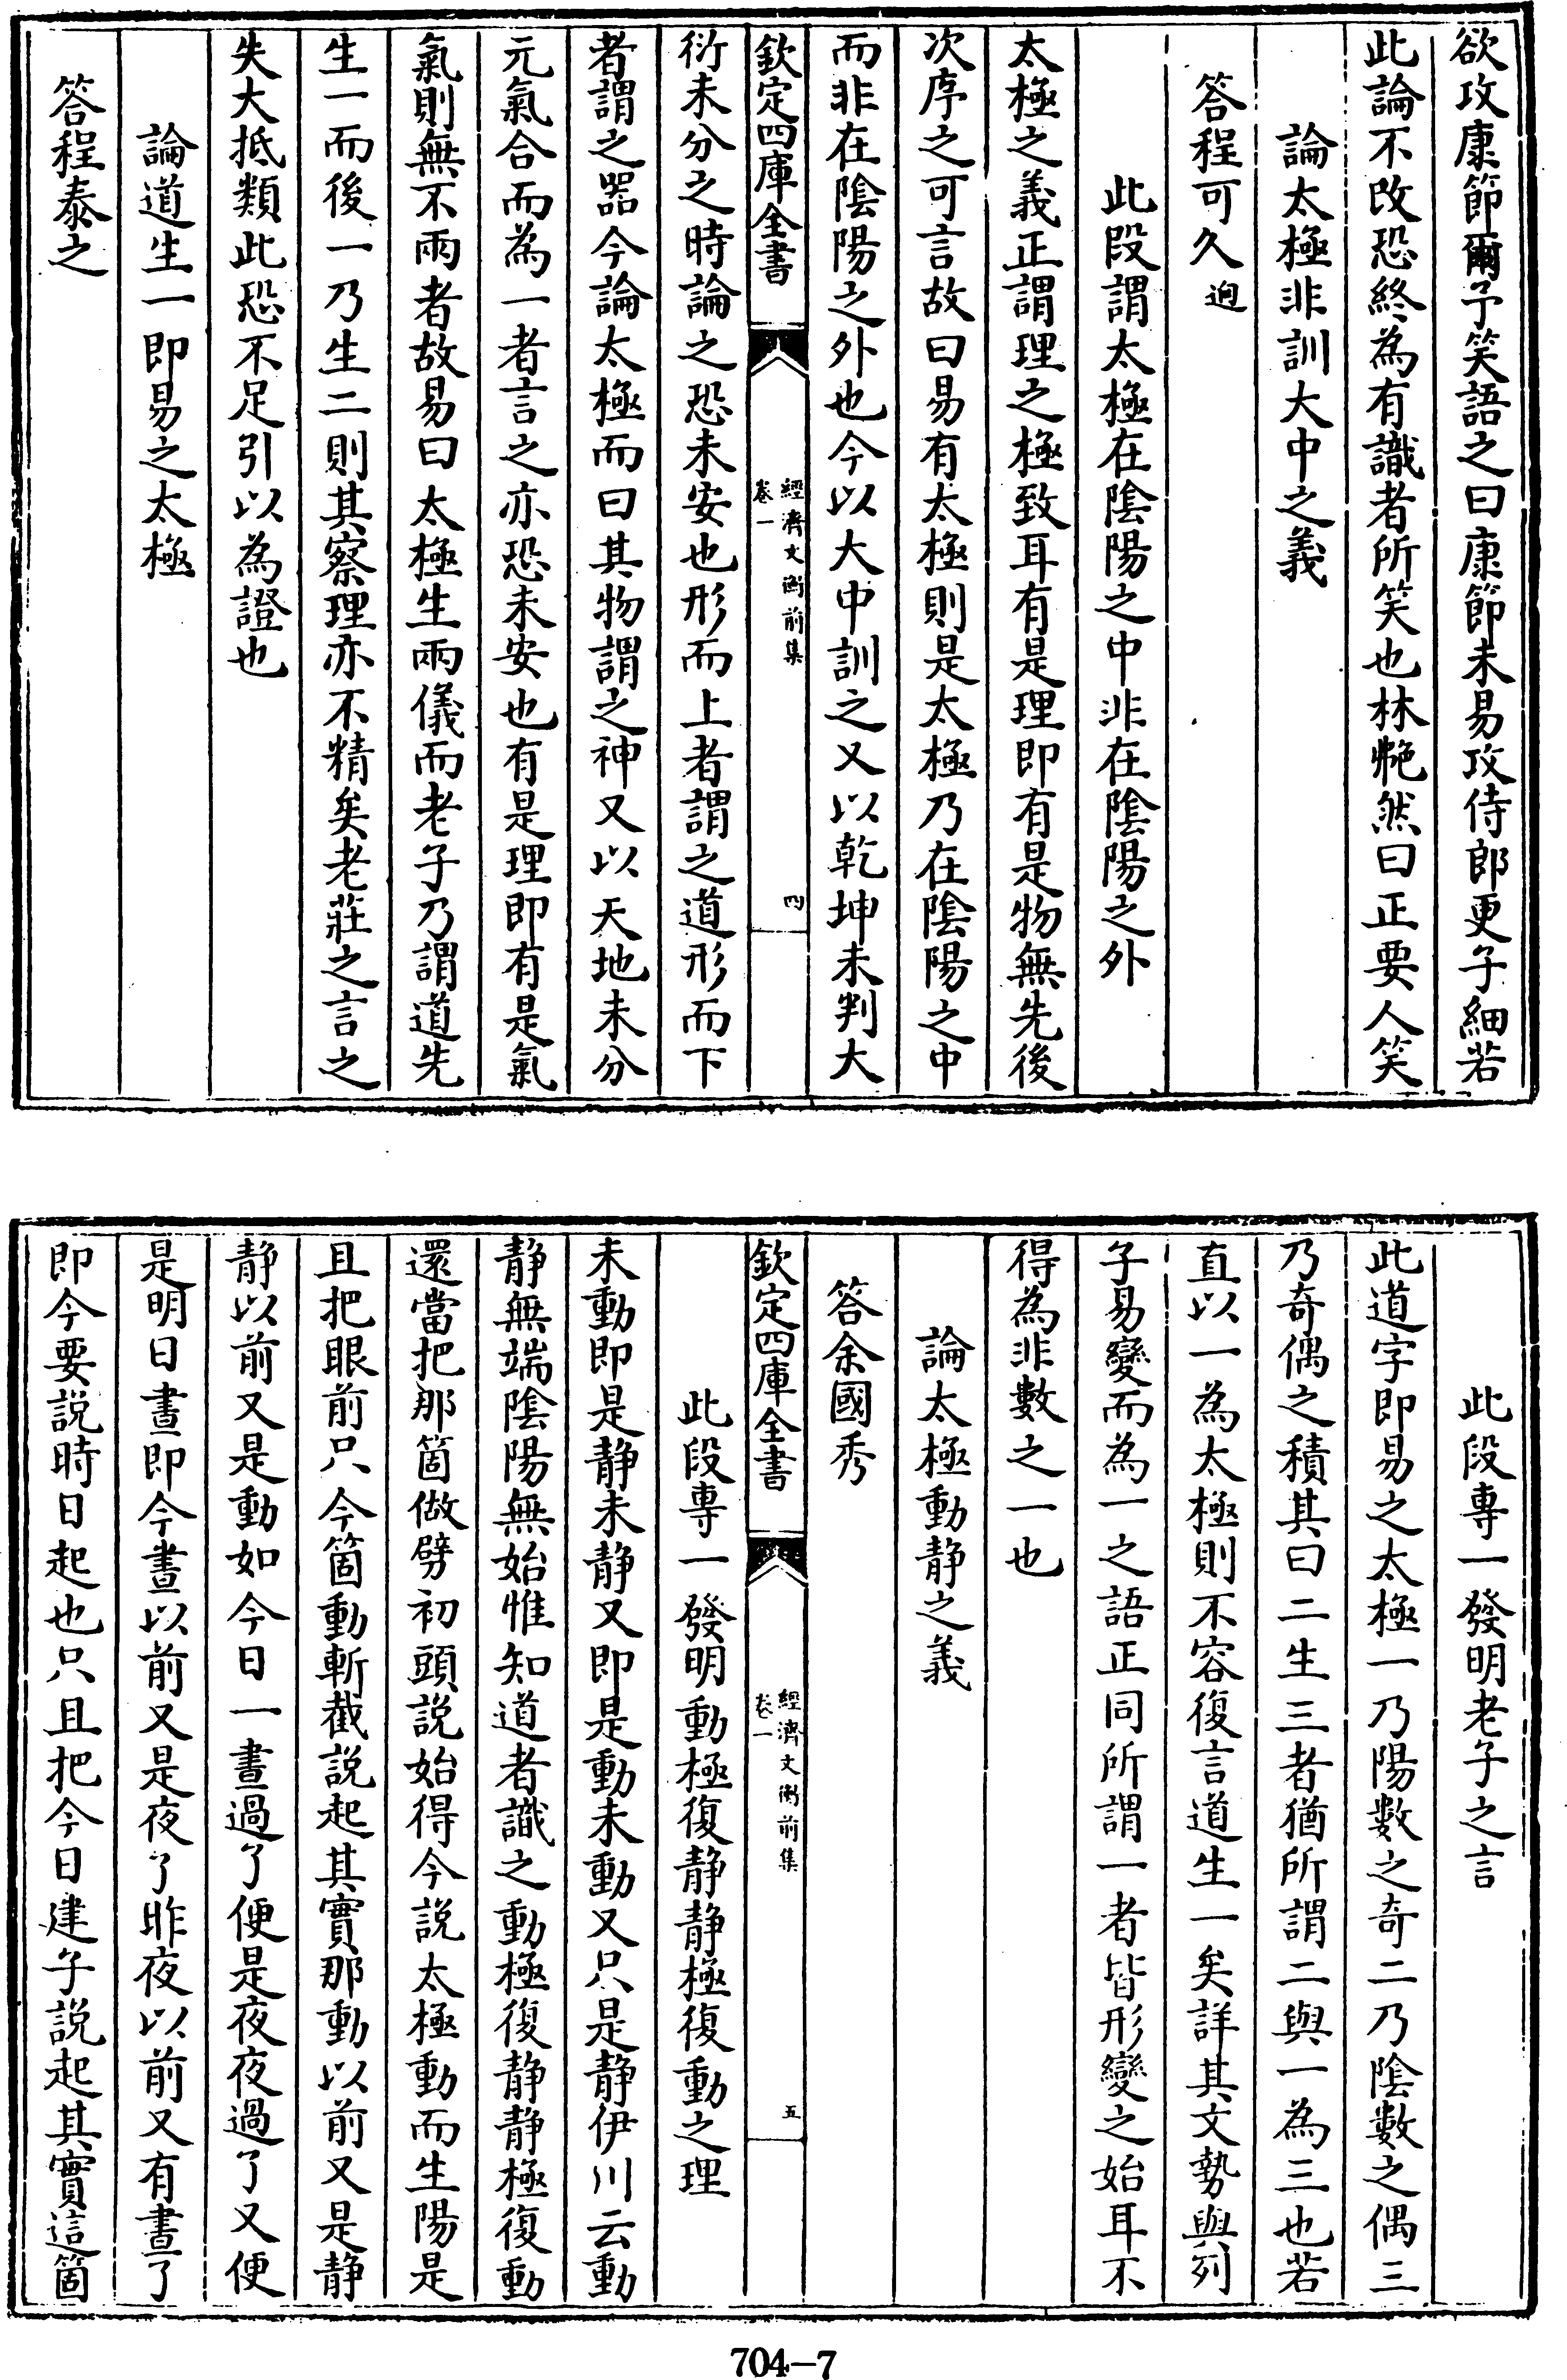 欲攻康節爾予笑語之曰康節未易攻侍郎更子細若
此論不改恐終為有識者所笑也林艴然曰正要人笑
論太極非訓大中之義
答程可久迥
此段謂太極在陰陽之中非在陰陽之外
太極之義正謂理之極致耳有是理即有是物無先後
次序之可言故曰易有太極則是太極乃在陰陽之中
而非在陰陽之外也今以大中訓之又以乾坤未判大
欽定四庫全書
經濟文衡前集
卷一
四
衍未分之時論之恐未安也形而上者謂之道形而下
者謂之器今論太極而曰其物謂之神又以天地未分
元氣合而為一者言之亦恐未安也有是理即有是氣
氣則無不兩者故易曰太極生兩儀而老子乃謂道先
生一而後一乃生二則其察理亦不精矣老莊之言之
失大抵類此恐不足引以為證也
論道生一即易之太極
答程泰之
此段專一發明老子之言
此道字即易之太極一乃陽數之奇二乃陰數之偶三
乃奇偶之積其曰二生三者猶所謂二與一為三也若
直以一為太極則不容復言道生一矣詳其文勢與列
子易變而為一之語正同所謂一者皆形變之始耳不
得為非數之一也
論太極動静之義
答余國秀
欽定四庫全書
經濟文衡前集
卷一
五
此段專一發明動極復静静極復動之理
未動即是静未静又即是動未動又只是静伊川云動
静無端陰陽無始惟知道者識之動極復静静極復動
還當把那箇做劈初頭説始得今説太極動而生陽是
且把眼前只今箇動斬截説起其實那動以前又是静
静以前又是動如今日一晝過了便是夜夜過了又便
是明日晝即今晝以前又是夜了昨夜以前又有晝了
即今要説時日起也只且把今日建子説起其實這箇
704-7